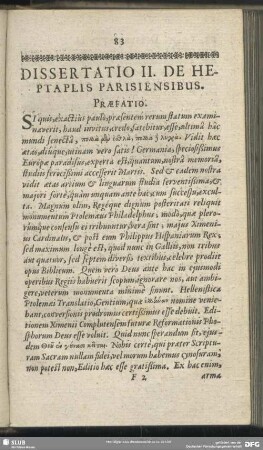 83
DISSERTATIO II. DE HE-
PTAPLIS PARISIENSIBUS.
PRÆFATIO.
Si quis exactius paulo præsentem rerum statum exami-
naverit, haud invitus, credo, fatebitur, esse, ultimâ hac
mundi senectâ, Vidit hæc
ætas, diuque, nimium vero satis! Germania, speciosissimus
Europæ paradisus, experta est, quantum, nostrâ memoriâ,
studiis sævissimi accesserit Martis. Sed & eadem nostra
vidit ætas artium & linguarum studia ferventissima, &
majori forte, quàm unquam ante hac, cum successu, excul-
ta. Magnum olim, Regéque dignum posteritati reliquit
monumentum Ptolemæus Philadelphus, modò, quæ plero-
rumque consensu ei tribuuntur, vera sint, majus Ximeni-
us Cardinalis, & post eum Philippus Hispaniarum Rex.
Sed maximum longè est, quod nunc in Galliis, non tribus
aut quatuor, sed septem diversis textibus, celebre prodiit
opus Biblicum. Quem verò Deus ante hac in ejusmodi
operibus Regiis habuerit scopum, ignorare nos, aut ambi-
gere, veterum monumenta minimè sinunt. Hellenistica
Ptolemæi Translatio, Gentium, quæ nomine venie-
bant, conversionis prodromus certissimus esse debuit. Edi-
tionem Ximenii Complutensem futuræ Reformationis Pho-
sphorum Deus esse voluit. Quid nunc sperandum sit, ejus-
dem Nobis certè, qui præter Scriptu-
ram Sacram nullam fidei, vel morum habemus cynosuram,
non potest non, Editio hæc esse gratissima. Ex hac enim,
F 2 arma